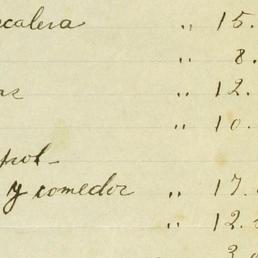 calera " 15.
" 8.
" 12.
" 10.
pol-
y comedor " 17.
" 12.
3